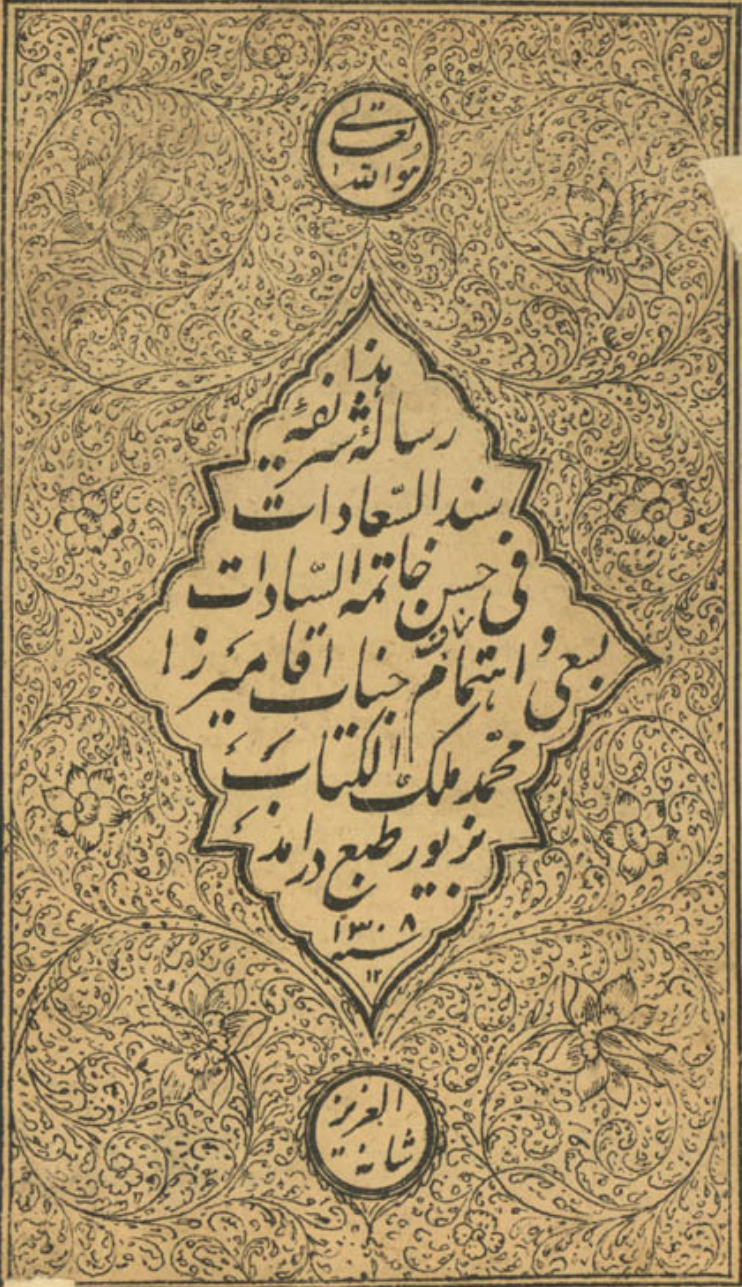 هو الله
تعالی
هذا
رسالهٔ شریفهٔ
سند السّعادات
فی حسن خاتمه السّادات
بسعی و اهتمام جناب اقا میرزا
محمّد ملک الکتاب
بزیور طبع درامد
سنه ۱۳۰۸
۱۲
العزیز
شانه